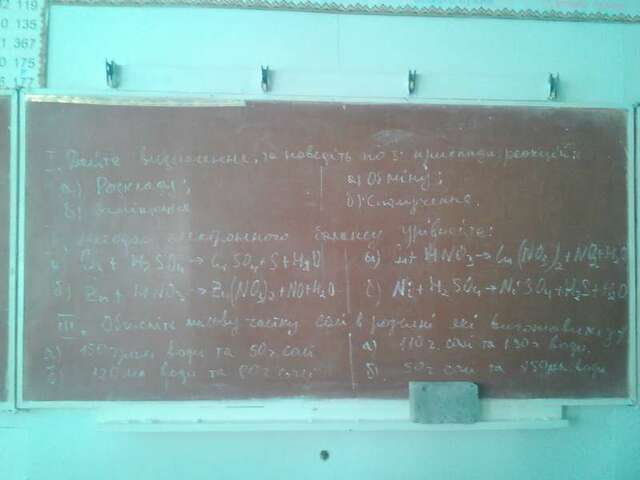 2 119
0 135
1 367
0 175
5 177
I. Дайте визначення, та наведіть по 3 приклади реакцій:
а) Розкладу; а) Обміну;
б) Заміщення б) Сполучення.
Методом електронного балансу урівняйте:
а) Cu + H2SO4 → CuSO4 + S + H2O а) + HNO3 → Cu(NO3)2 + NO2 + H2O
б) Zn + HNO3 → Zn(NO3)2 + NO + H2O б) Ni + H2SO4 → NiSO4 + H2S + H2O
III. Обчисліть масову частку солі в розчині які виготовили з
а) 150 грам води та 50 г солі а) 110 г. солі та 190 г води.
б) 120 мл води та 80 г солі б) 50 г солі та 450 мл води